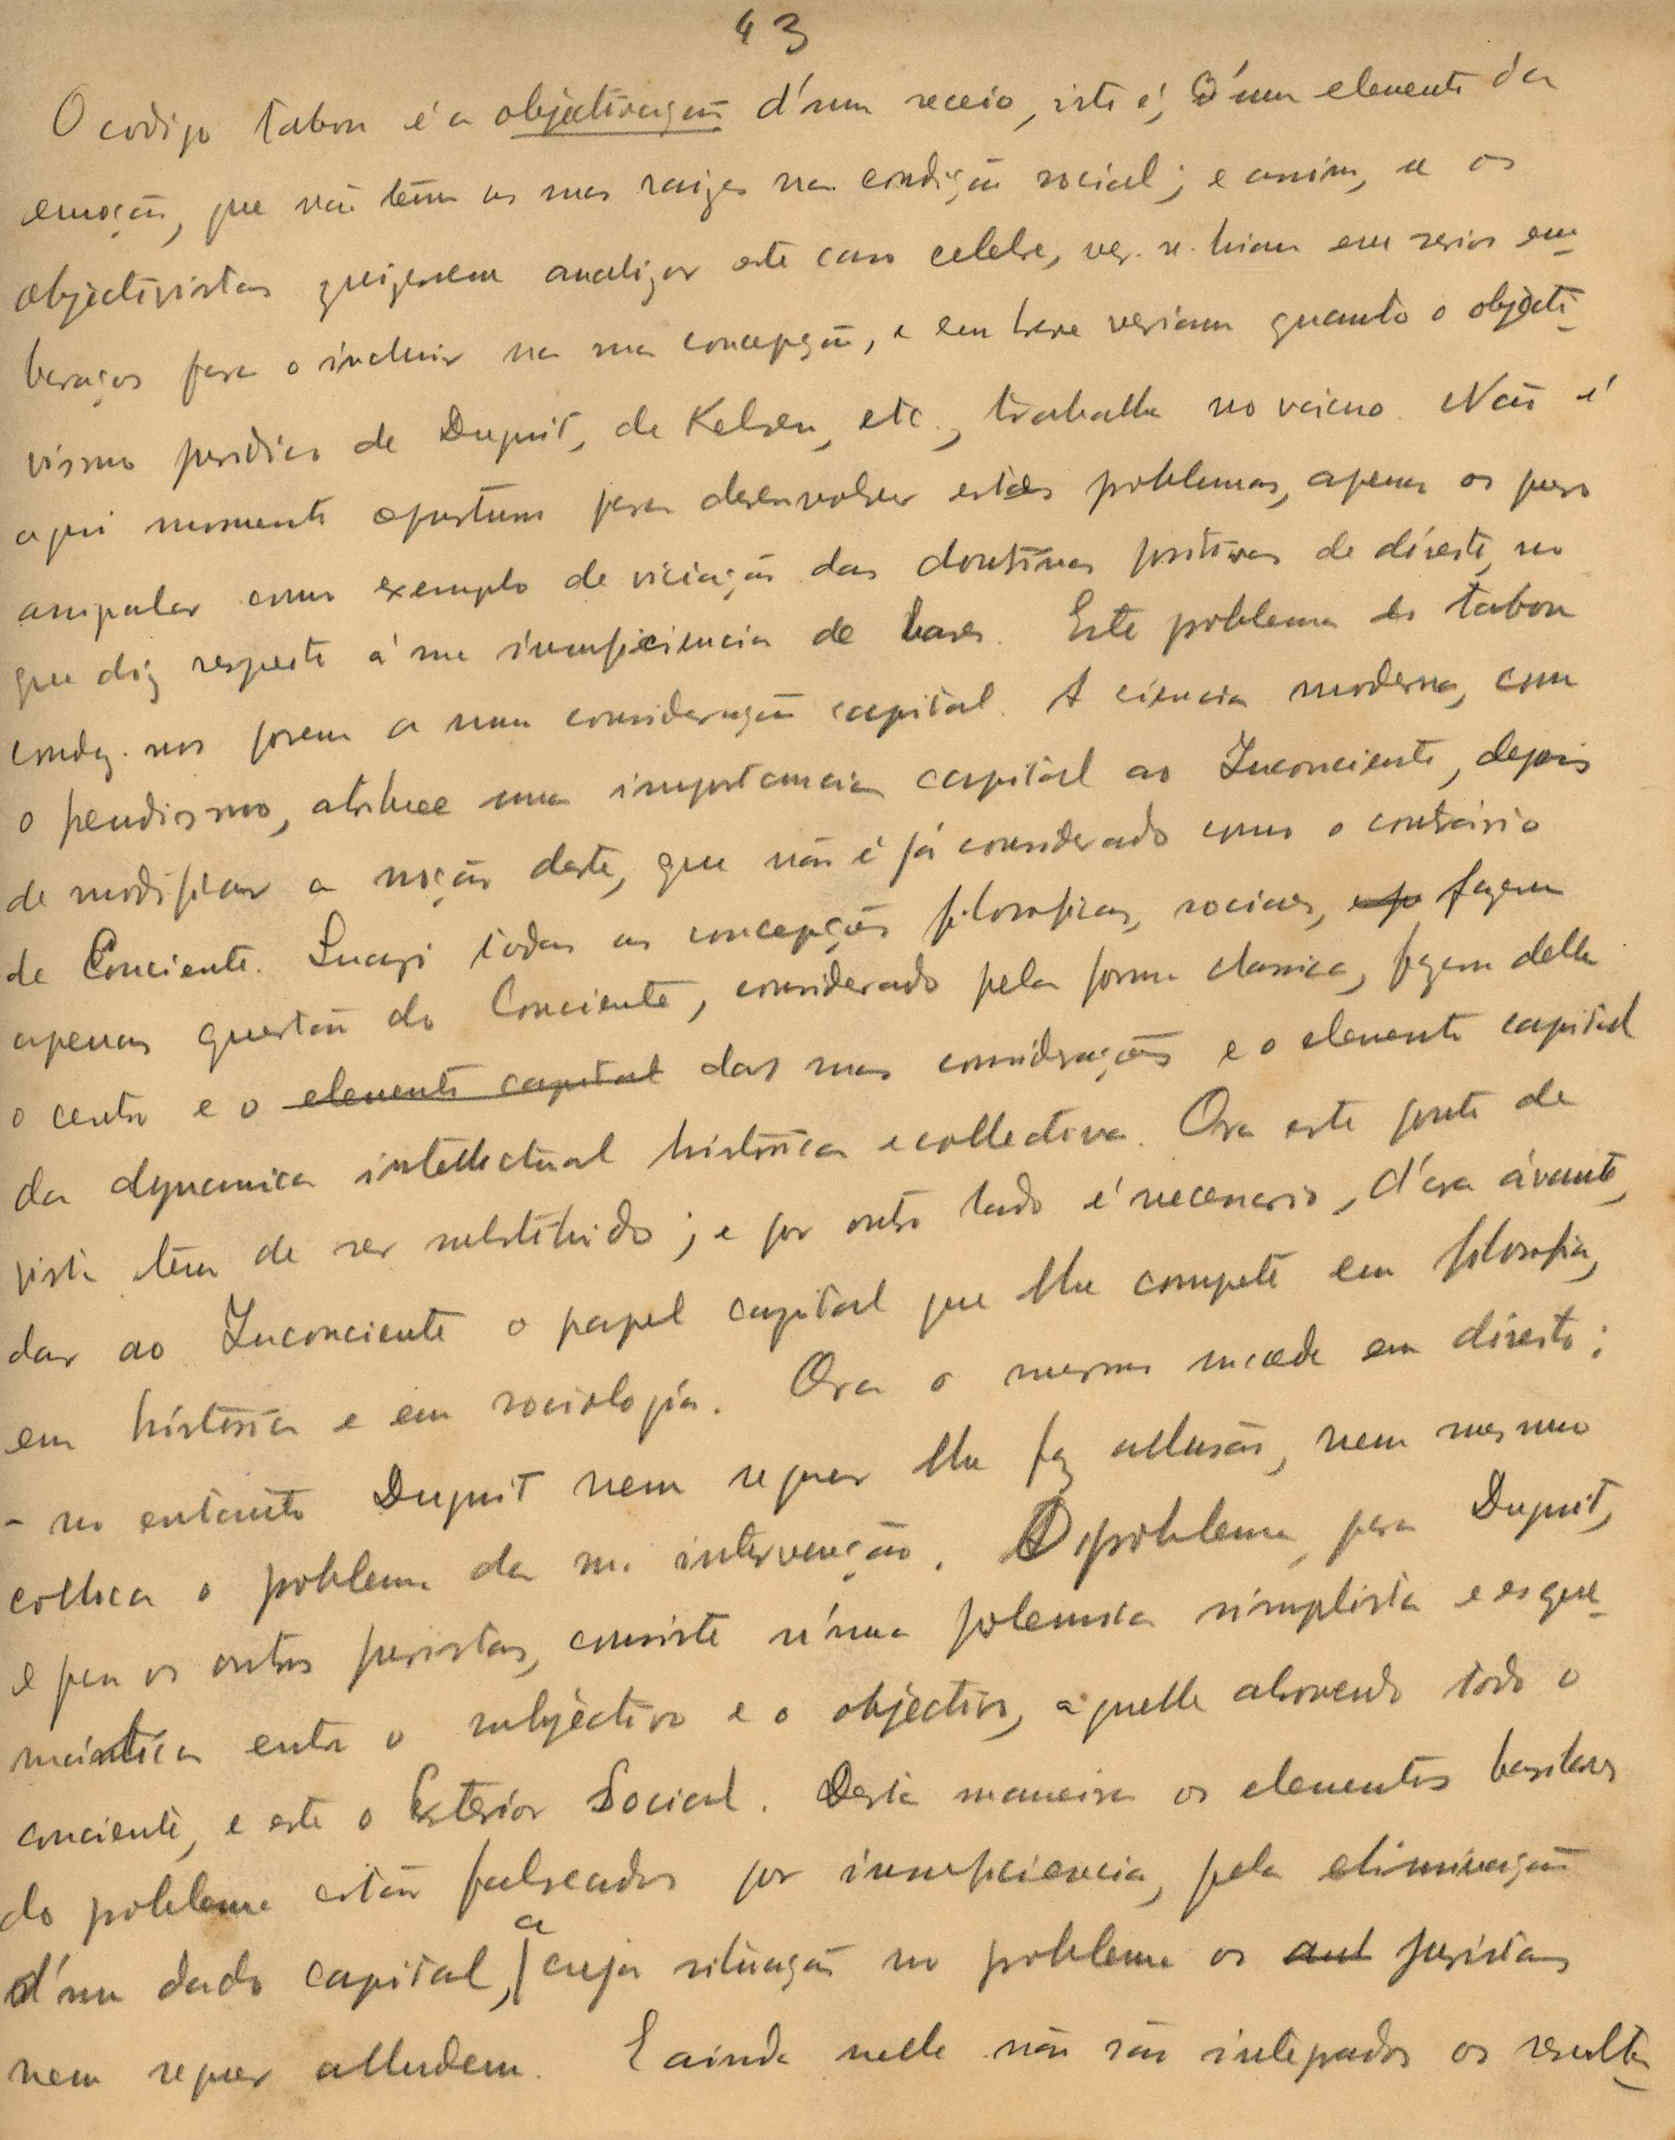 43
O codigo tabou é a objectivação d'um receio, isto é, d'um elemento da
emoção, que não tem as suas raizes na condição social; e assim, se os
objectivistas quizessem analizar este caso celebre, ver-se-hiam em serios em-
baraços para o incluir na sua concepção, e em breve veriam quanto o objecti-
vismo juridico de Duguit, de Kelsen, etc., trabalha no vacuo. Não é
aqui momento oportuno para desenvolver estes problemas, apenas os quero
assignalar como exemplo de viciação das doutrinas positivas de direito, no
que diz respeito á sua insuficiencia de bases. Este problema do tabou
conduz-nos porem a uma consideração capital. A ciencia moderna, com
o freudismo, atribue uma importancia capital ao Inconciente, depois
de modificar a noção deste, que não é já considerado como o contrário
de Conciente. Quazi todas as concepções filosoficas, sociaes, fazem
apenas questão do Conciente, considerado pela forma classica, fazem delle
o centro e o elemento capital das suas considerações e o elemento capital
da dynamica intellectual historica e collectiva. Ora este ponto de
vista tem de ser substituido; e por outro lado é necessario, d'ora ávante,
dar ao Inconciente o papel capital que lhe compete em filosofia,
em história e em sociologia. Ora o mesmo sucede em direito;
- no entanto Duguit nem sequer lhe faz allusão, nem mesmo
colloca o problema da sua intervenção. O problema, para Duguit,
e para os outros juristas, consiste n'uma polemica simplista e esque-
mática entre o subjectivo e o objectivo, aquelle abrangendo todo o
conciente, e este o Exterior Social. Desta maneira os elementos basilares
do problema estão falseados por insuficiencia, pela eliminação
d'um dado capital, a cuja situação no problema os aut juristas
nem sequer alludem. E ainda nelle não são integrados os resulta-